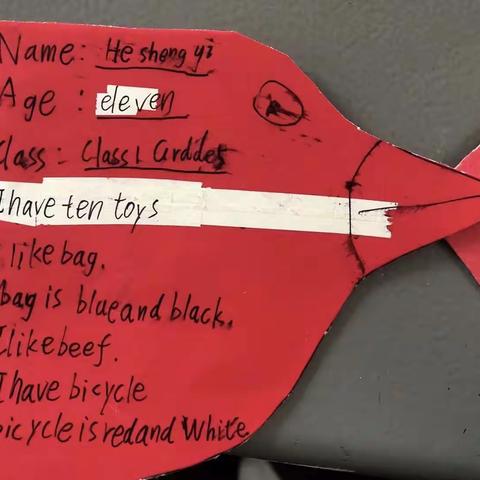 Name: He sheng yi
Age : eleven
Class: Class1 Grddes
I have ten toys
I like bag.
bag is blue and black.
I like beef.
I have bicycle
bicycle is red and White